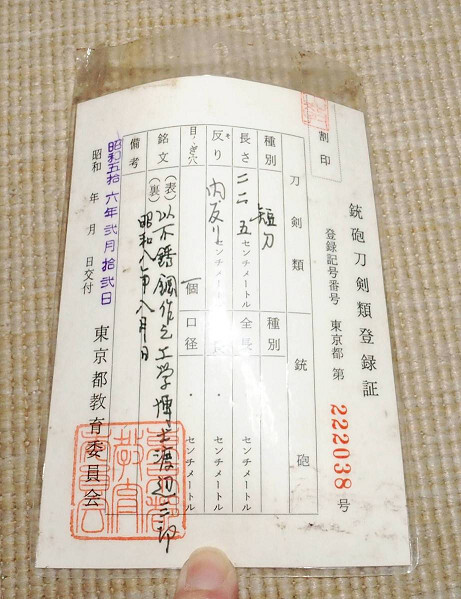 割印
銃砲刀剣類登録証
登録記号番号 東京都 第 222038 号
刀剣類 銃砲
種別 短刀 種別
長さ 二二・五 センチメートル 全長 ・ センチメートル
反り 内反り センチメートル 長 ・ センチメートル
目くぎ穴 一個 口径 ・ センチメートル
銘文 (表) 以不銹鋼作之工学博士渡辺三郎
(裏) 昭和八年八月日
備考
昭和五拾六年弐月拾弐日
昭和 年 月 日交付
東京都教育委員会